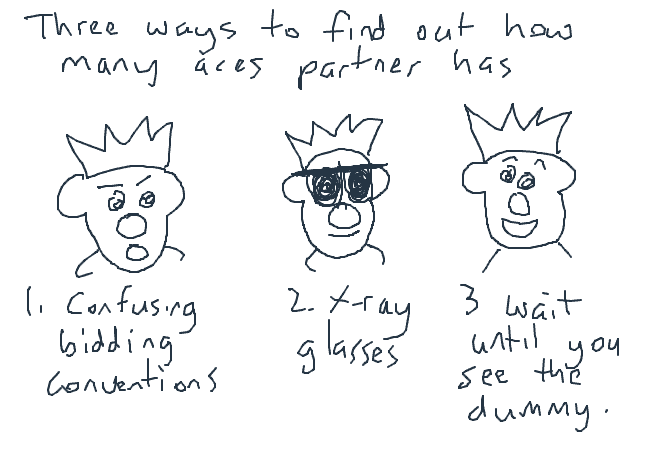 Three ways to find out how
many aces partner has
1. Confusing
bidding
conventions
2. X-ray
glasses
3 wait
until you
see the
dummy.